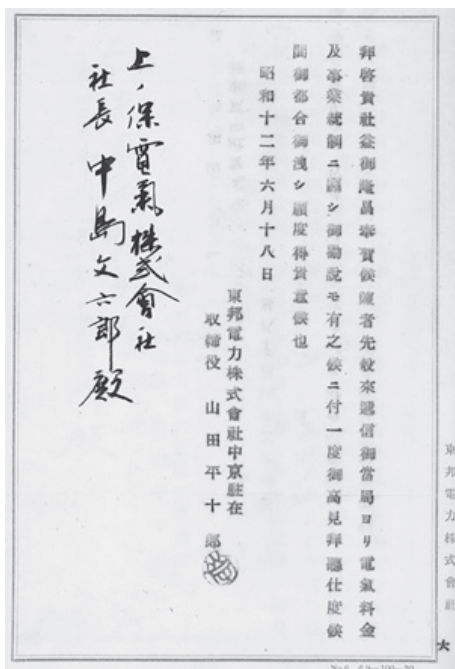 拜啓貴社益御隆昌奉賀候陳者先般來遞信御當局ヨリ電氣料金
及事業統制ニ關シ御勸說モ有之候ニ付一度御高見拜聽仕度候
間御都合御洩シ願度得貴意候也
昭和十二年六月十八日
東邦電力株式會社中京駐在
取締役 山田平十郎
上ノ保電氣株式會社
社長 中島文六郎殿
東邦電力株式會社